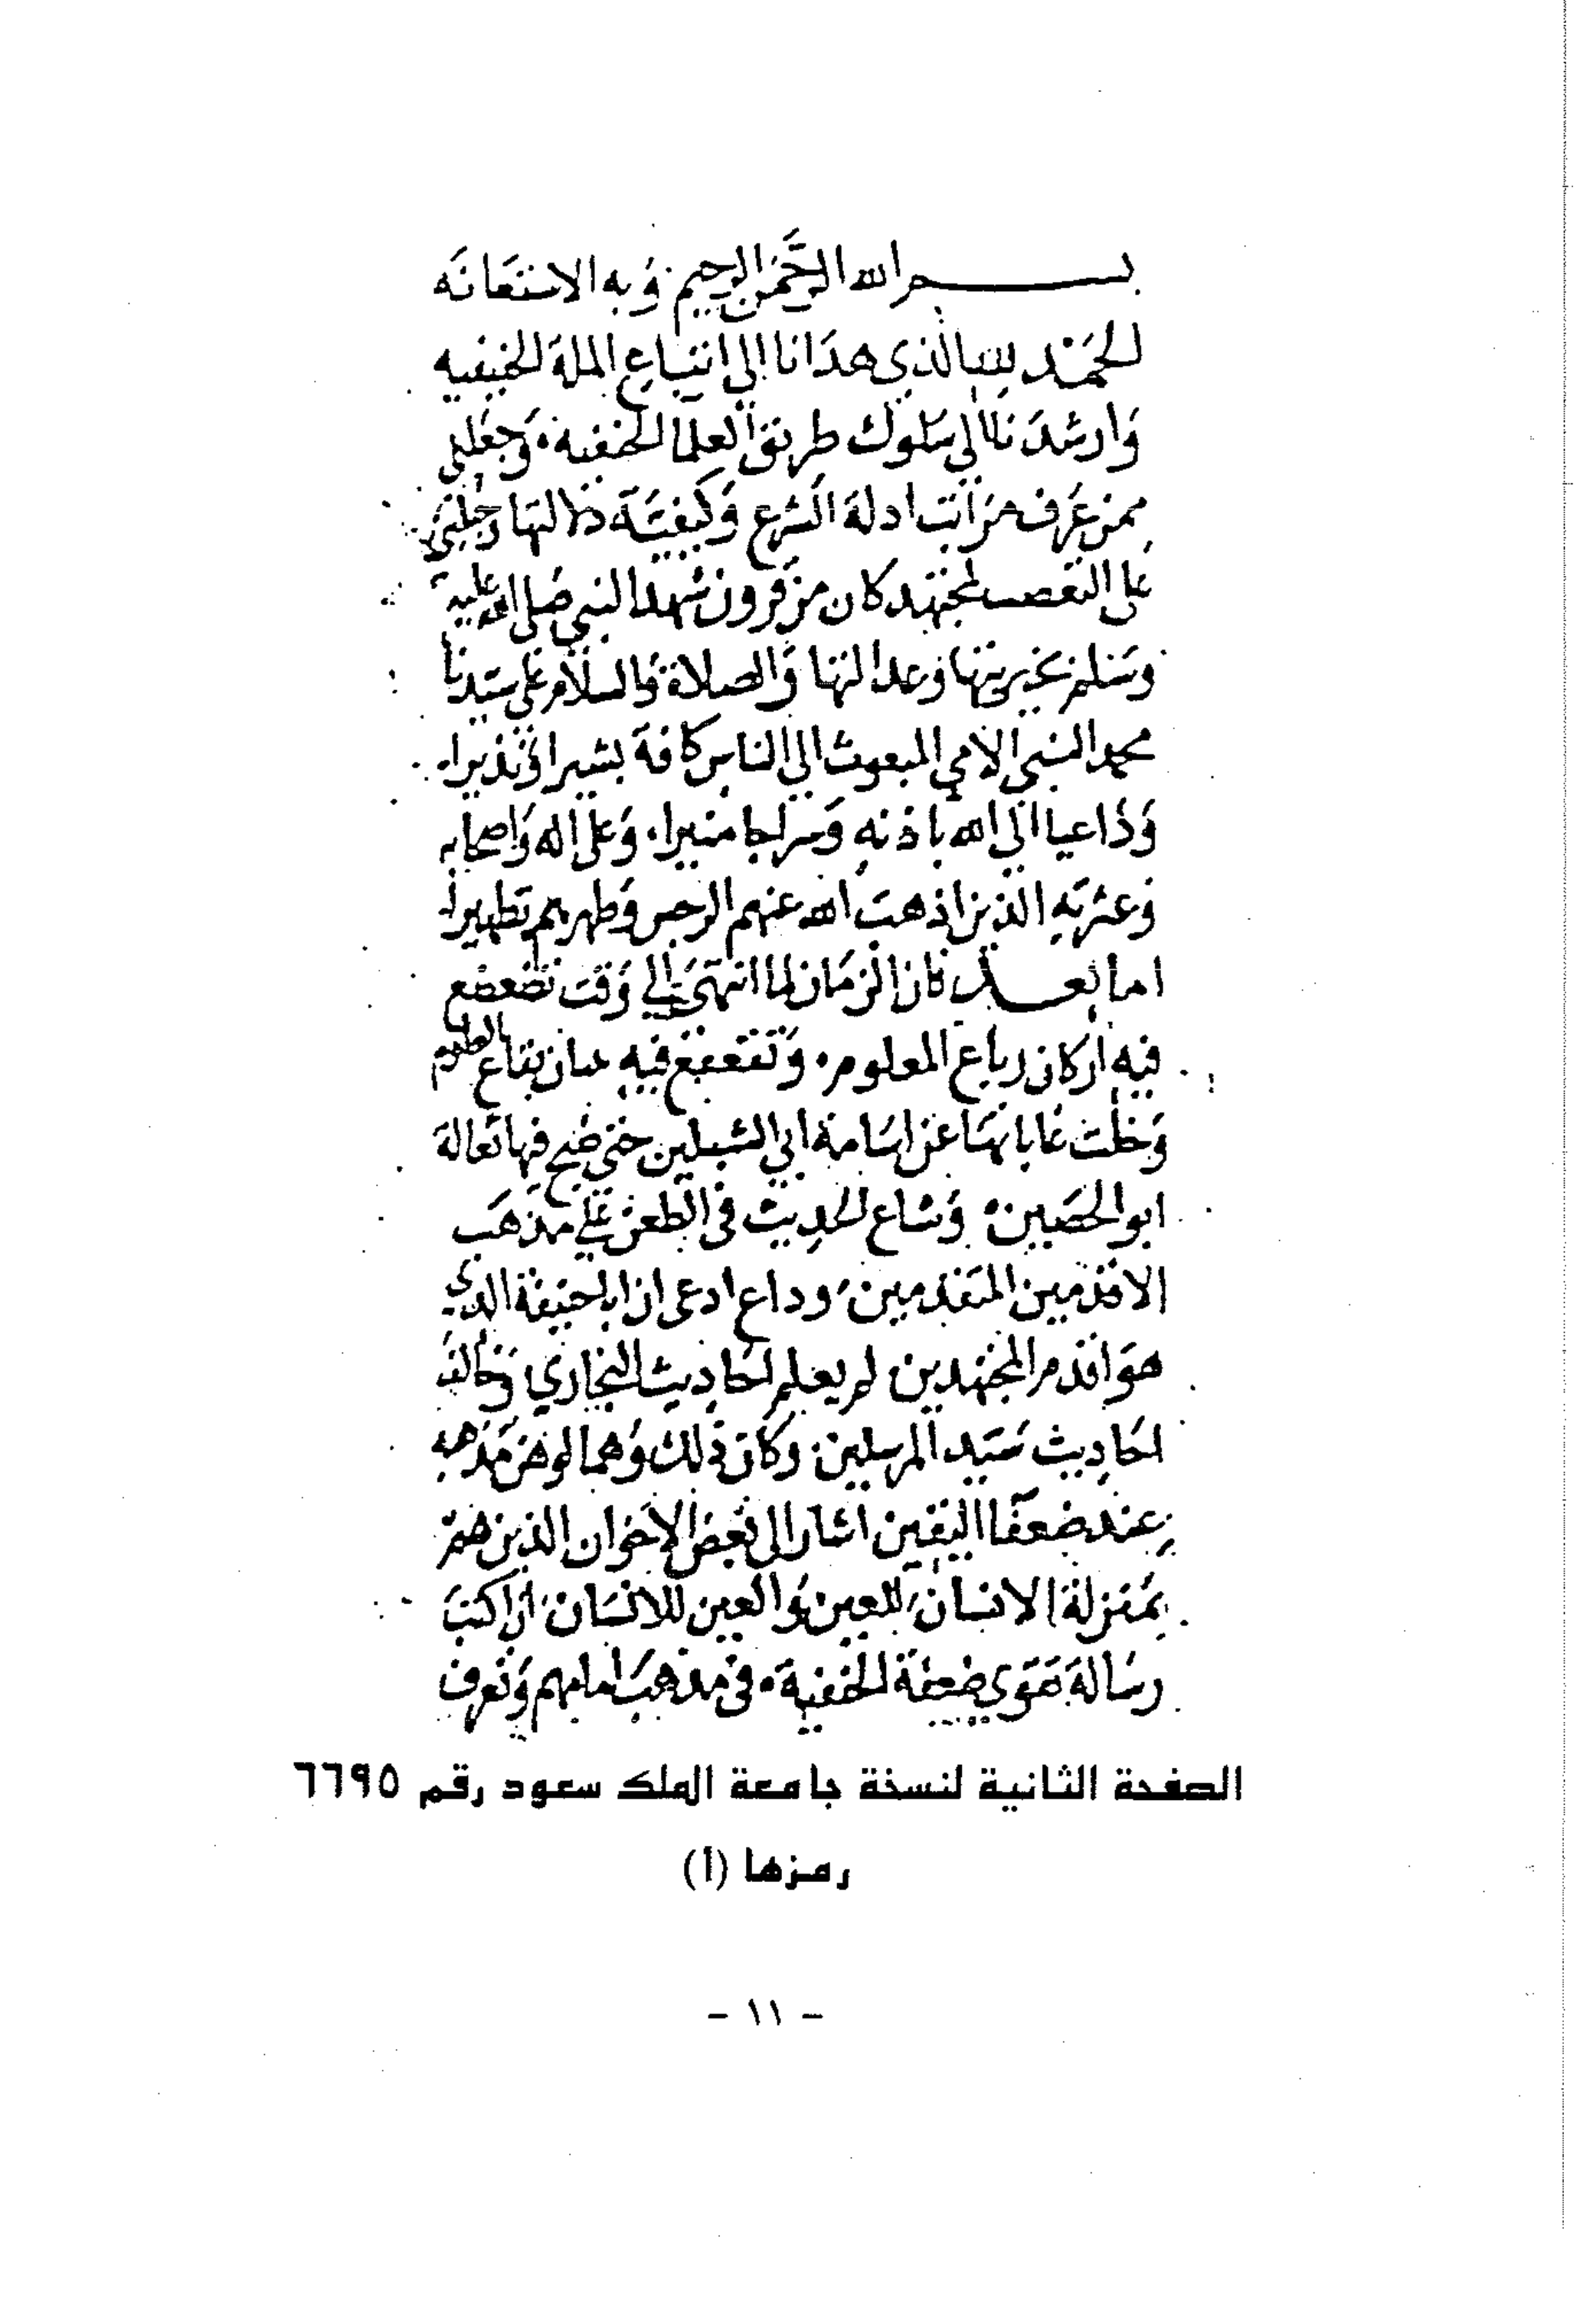 بسم الله الرحمن الرحيم وبه الاستعانه
الحمد لله الذي هدانا الى اتباع الملة الحنيفيه
وارشدنا الي سلوك طريق العلما الحنفيه وجعلني
ممن عرف مراتب ادلة الشرع وكيفية دلالتها وجبلني
على التعصب لمجتهد كان من قرون شهد النبي صلى الله عليه
وسلم بخيريتها وعدالتها والصلاة والسلام على سيدنا
محمد النبي الامي المبعوث الي الناس كافة بشيرا ونذيرا
وداعيا الي الله باذنه وسراجا منيرا وعلى اله واصحابه
وعترته الذين اذهب الله عنهم الرجس وطهرهم تطهيرا
اما بعد فان الزمان لما انتهى الي وقت تضعضع
فيه اركان رباع المعلوم وتقعقع فيه بقاع العلوم
وخلت غاباتها عن اسامة ابي الشبلين حتى ضبح فيها ثعالة
ابو الحصين وشاع الحديث في الطعن على مذهب
الاقدمين المتقدمين وداع ادعى ان ابا حنيفة الذي
هو اقدم المجتهدين لم يعلم احاديث البخاري وخالف
احاديث سيد المرسلين وكان ذلك وهما لوهن مذهبه
عند ضعفا اليقين اشار الى بعض الاخوان الذين هم
بمنزلة الانسان للعين والعين للانسان ان اكتب
رسالة تقوي ضعفة الحنفية في مذهب امامهم وتعرف
الصفحة الثانية لنسخة جامعة الملك سعود رقم ٦٦٩٥
رمزها (أ)
- ١١ -